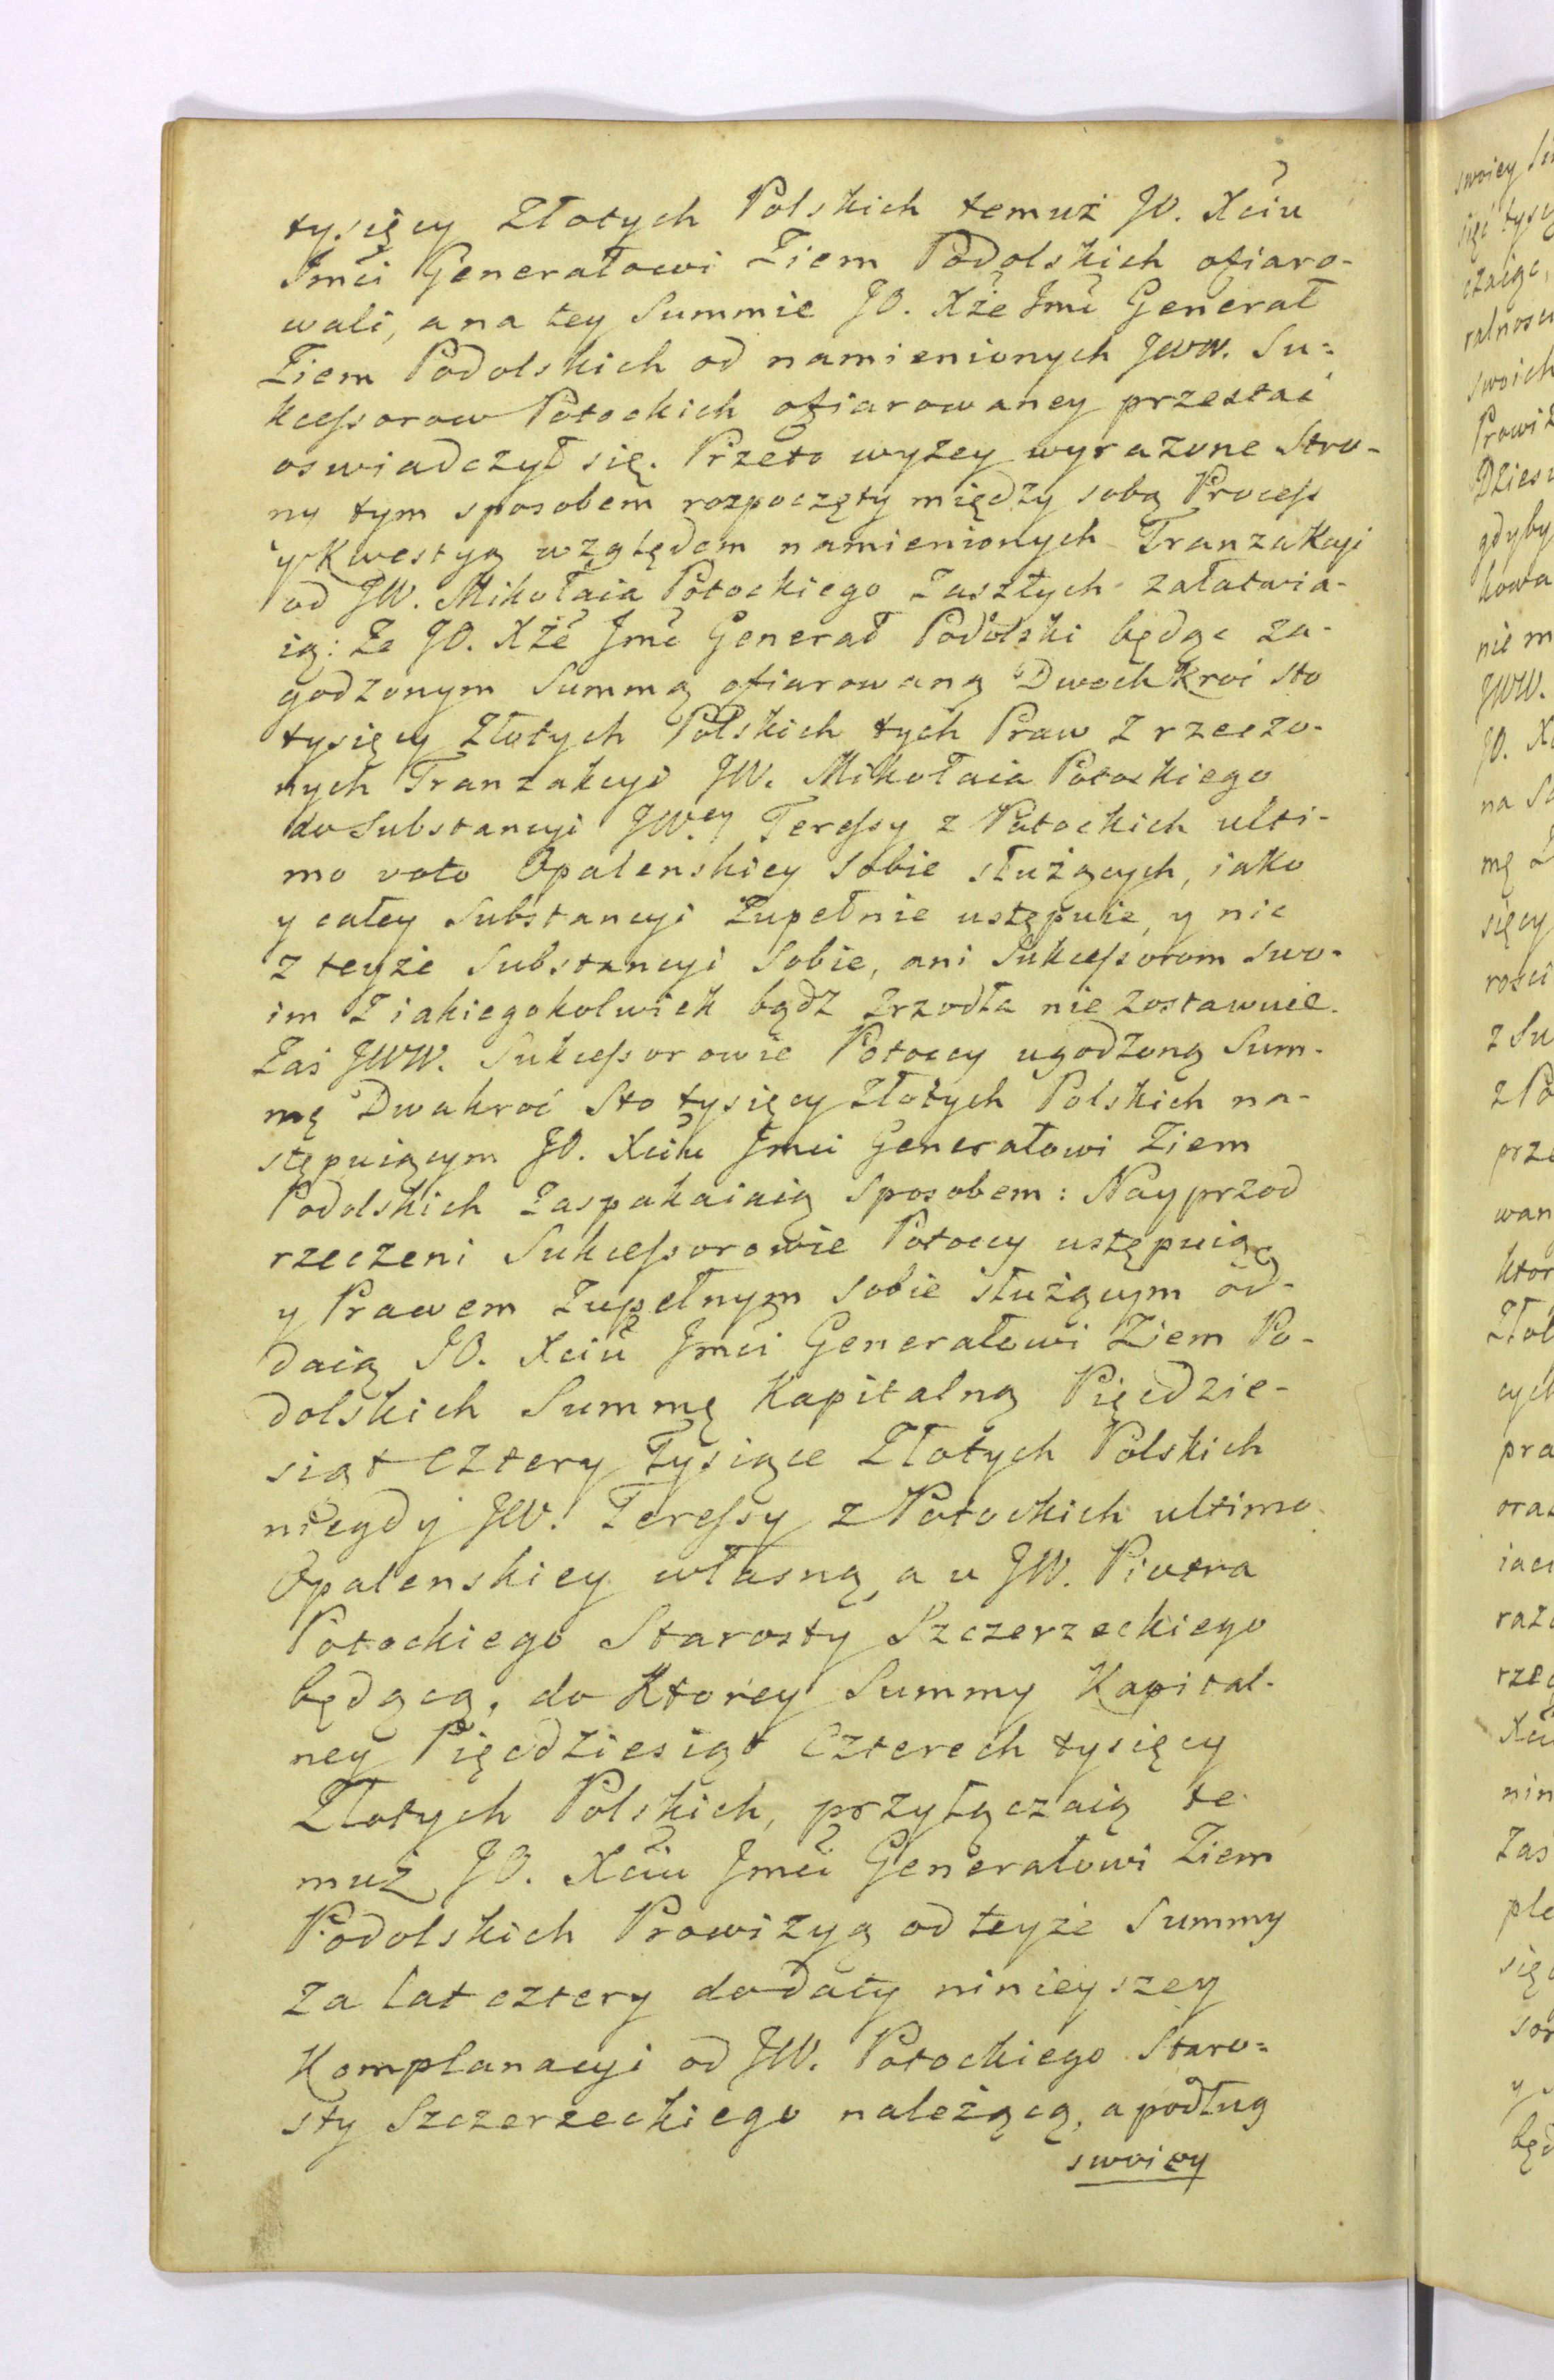 tysięcy Złotych Polskich temuż JO. Xciu
Jmci Generałowi Ziem Podolskich ofiaro-
wali, a na tey Summie JO. Xże Jmć Generał
Ziem Podolskich od namienionych JWW. Su-
kcessorow Potockich ofiarowaney przestać
oswiadczył się. Przeto wyżey wyrażone Stro-
ny tym sposobem rozpoczęty między sobą Process
y Kwestyą względem namienionych Tranzakcyi
od JW. Mikołaia Potockiego zaszłych załatwia-
ią: Że JO. Xże Jmć Generał Podolski będąc za-
godzonym Summą ofiarowaną Dwochkroć sto
tysięcy Złotych Polskich tych Praw z rzeczo-
nych Tranzakcyi JW. Mikołaia Potockiego
do Substancyi JWey Teressy z Potockich ulti-
mo voto Opalenskiey sobie służących, iako
y całey Substancyi zupełnie ustępuie, y nic
z teyże Substancyi Sobie, ani Sukcessorom swo-
im z iakiegokolwiek bądź zrzodła nie zostawuie.
Zaś JWW. Sukcessorowie Potoccy ugodzoną Sum-
mę Dwakroć Sto tysięcy Złotych Polskich na-
stępuiącym JO. Xciu Jmci Generałowi Ziem
Podolskich zaspakaiaią Sposobem: Nayprzod
rzeczeni Sukcessorowie Potoccy ustępuią
y Prawem zupełnym sobie służącym od-
daią JO. Xciu Jmci Generałowi Ziem Po-
dolskich Summę Kapitalną Pięcdzie-
siąt Cztery Tysiące Złotych Polskich
niegdy JW. Teressy z Potockich ultimo
Opalenskiey własną, a u JW. Piotra
Potockiego Starosty Szczerzeckiego
będącą, do Ktorey Summy Kapital-
ney Pięcdziesiąt Czterech tysięcy
Złotych Polskich, przyłączaią te-
muż JO. Xciu Jmci Generałowi Ziem
Podolskich Prowizyą od teyże Summy
za lat cztery do daty ninieyszey
Komplanacyi od JW. Potockiego Staro-
sty Szczerzeckiego należącą, a podług
swoiey